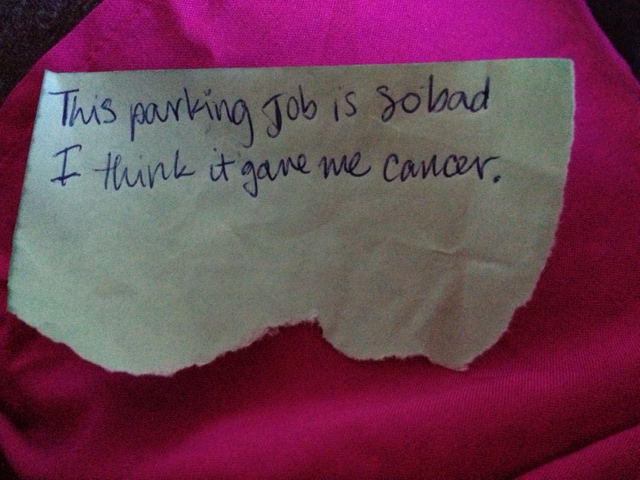 This parking Job is so bad
I think it gave me cancer.